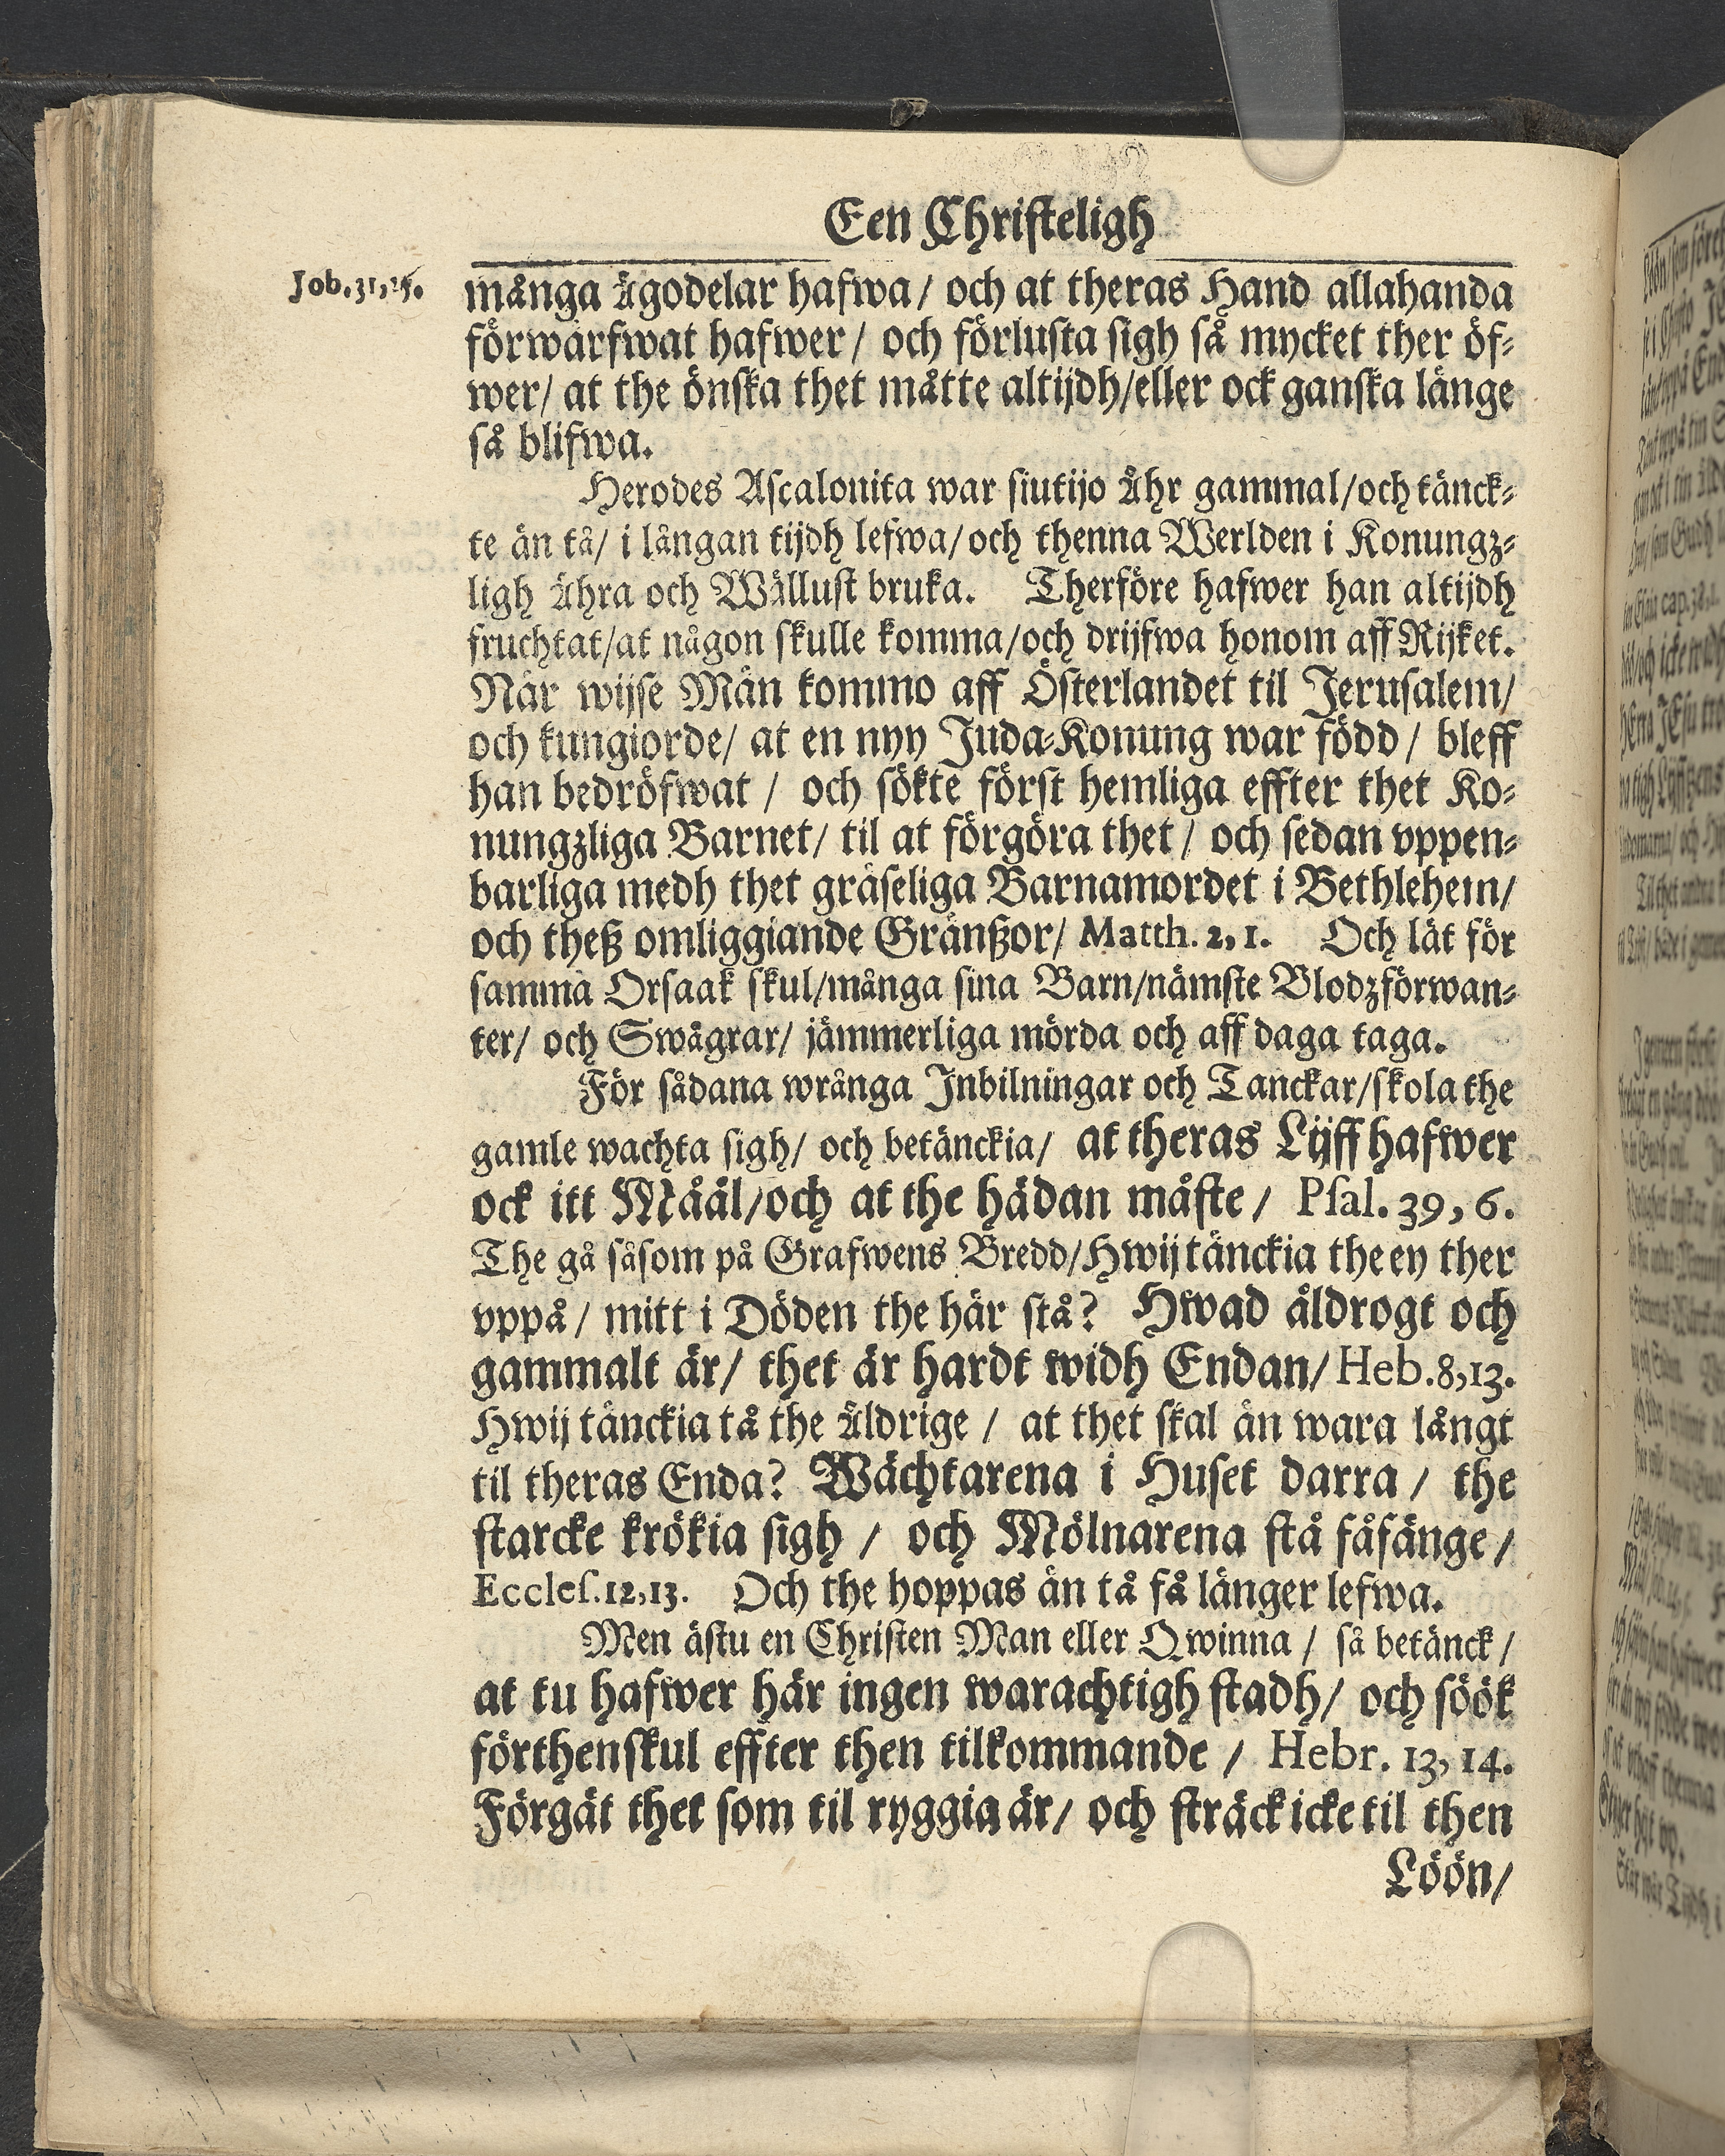 Een Christeligh
Job.31,25.
många ägodelar hafwa/ och at theras Hand allahanda
förwärfwat hafwer/ och förlusta sigh så mycket ther öf⸗
wer/ at the önska thet måtte altijdh/eller ock ganska länge
så blifwa.
Herodes Ascalonita war siutijo Åhr gammal/och tänck⸗
te än tå/ i långan tijdh lefwa/och thenna Werlden i Konungz⸗
ligh Ähra och Wällust bruka. Therföre hafwer han altijdh
fruchtat/at någon skulle komma/och drijfwa honom aff Rijket.
När wijse Män kommo aff Österlandet til Jerusalem/
och kungiorde/ at en nyy Juda⸗Konung war född/ bleff
han bedröfwat / och sökte först hemliga effter thet Ko⸗
nungzliga Barnet/ til at förgöra thet/ och sedan vppen⸗
barliga medh thet gräseliga Barnamordet i Bethlehem/
och theß omliggiande Gränßor/ Matth. 2, 1. Och lät för
samma Orsaak skul/många sina Barn/nämste Blodzförwan⸗
ter/ och Swågrar/ jämmerliga mörda och aff daga taga.
För sådana wrånga Inbilningar och Tanckar/skola the
gamle wachta sigh/ och betänckia/ at theras Lijff hafwer
ock itt Måål/och at the hädan måste/ Psal. 39, 6.
The gå såsom på Grafwens Bredd/Hwij tänckia the ey ther
vppå/ mitt i Döden the här stå? Hwad äldrogt och
gammalt är/ thet är hardt widh Endan/Heb.8,13.
Hwij tänckia tå the Äldrige / at thet skal än wara långt
til theras Enda? Wächtarena i Huset darra / the
starcke krökia sigh / och Mölnarena stå fåfänge/
Eccles.12,13. Och the hoppas än tå få länger lefwa.
Men ästu en Christen Man eller Qwinna / så betänck/
at tu hafwer här ingen warachtigh stadh/ och söök
förthenskul effter then tilkommande / Hebr. 13, 14.
Förgät thet som til ryggia är/ och sträck icke til then
Löön/